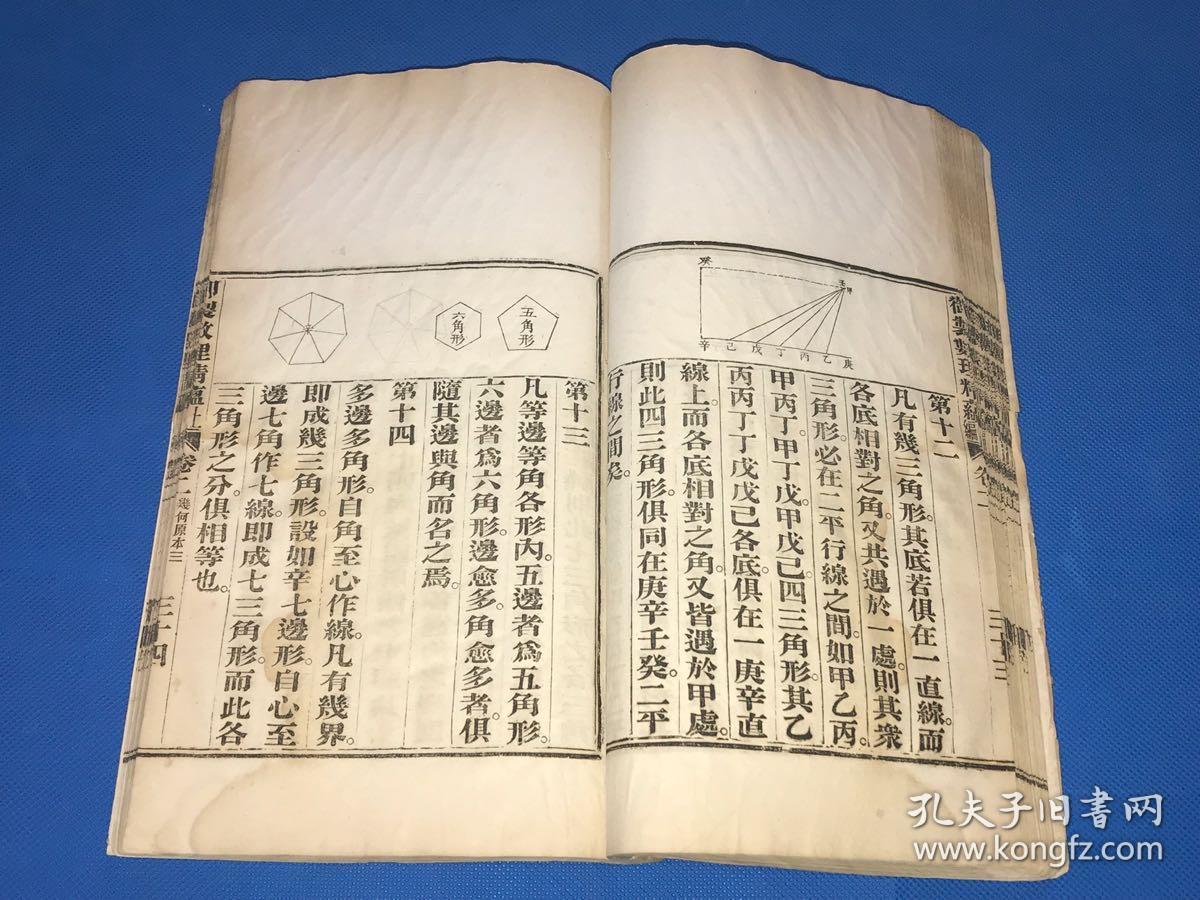 第十二
凡有幾三角形其底若俱在一直線而
各底相對之角又共遇於一處則其衆
三角形必在二平行線之間如甲乙丙
甲丙丁甲丁戊甲戊己四三角形其乙
丙丙丁丁戊戊己各底俱在一庚辛直
線上而各底相對之角又皆遇於甲處
則此四三角形俱同在庚辛壬癸二平
行線之間矣
癸
壬
甲
辛 己 戊 丁 丙 乙 庚
卷二
三十三
第十三
凡等邊等角各形內五邊者爲五角形
六邊者爲六角形邊愈多角愈多者俱
隨其邊與角而名之焉
第十四
多邊多角形自角至心作線凡有幾界
即成幾三角形設如辛七邊形自心至
邊七角作七線即成七三角形而此各
三角形之分俱相等也
五角形
六角形
辛
御製數理精蘊上
卷二
幾何原本三
三十四
孔夫子旧书网
www.kongfz.com